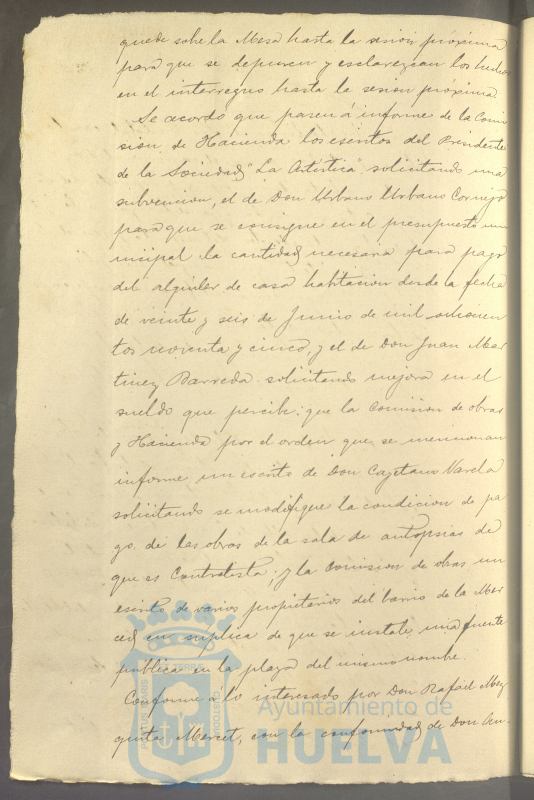 quede sobre la Mesa hasta la sesion próxima
para que se depuren y esclarezcan los hechos
en el interregno hasta la sesion próxima.
Se acordo que pasen á informe de la Comi
sion de Hacienda los escritos del Presidente
de la Sociedad "La Artistica" solicitando una
subvencion, el de Don Urbano Urbano Cornejo
para que se consigne en el presupuesto mu
nicipal la cantidad necesaria para pago
del alquiler de casa habitacion desde la fecha
de veinte y seis de Junio de mil ochocien
tos noventa y cinco, y el de Don Juan Mar
tinez Barreda solicitando mejora en el
sueldo que percibe: que la Comision de obras
y Hacienda por el orden que se mencionan
informe un escrito de Don Cayetano Varela
solicitando se modifique la condicion de pa
go de las obras de la sala de autopsias de
que es Contratista; y la Comision de obras un
escrito de varios propietarios del barrio de la Mer
ced en suplica de que se instale una fuente
publica en la plaza del mismo nombre.
Conforme a lo interesado por Don Rafael
quita Mercet, con la conformidad de Don
PORTUS MARIS ET TERRAE CUSTODIA
Ayuntamiento de
HUELVA